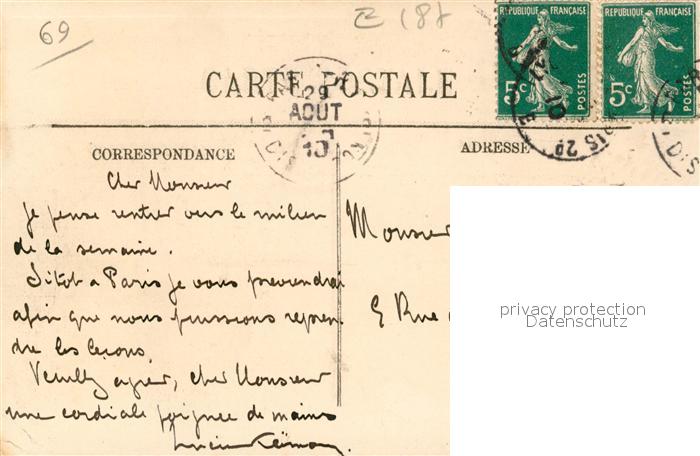 69
18
RÉPUBLIQUE FRANÇAISE
5c POSTES
RÉPUBLIQUE FRANÇAISE
5c POSTES
CARTE POSTALE
29
AOUT
10
CORRESPONDANCE
ADRESSE
Cher Monsieur
Je pense rentrer vers le milieu
de la semaine.
Sitôt à Paris je vous préviendrai
afin que nous puissions repren
dre les leçons.
Veuillez agréer, cher Monsieur
une cordiale poignée de mains
Lucien
Monsieur
5 Rue
privacy protection
Datenschutz